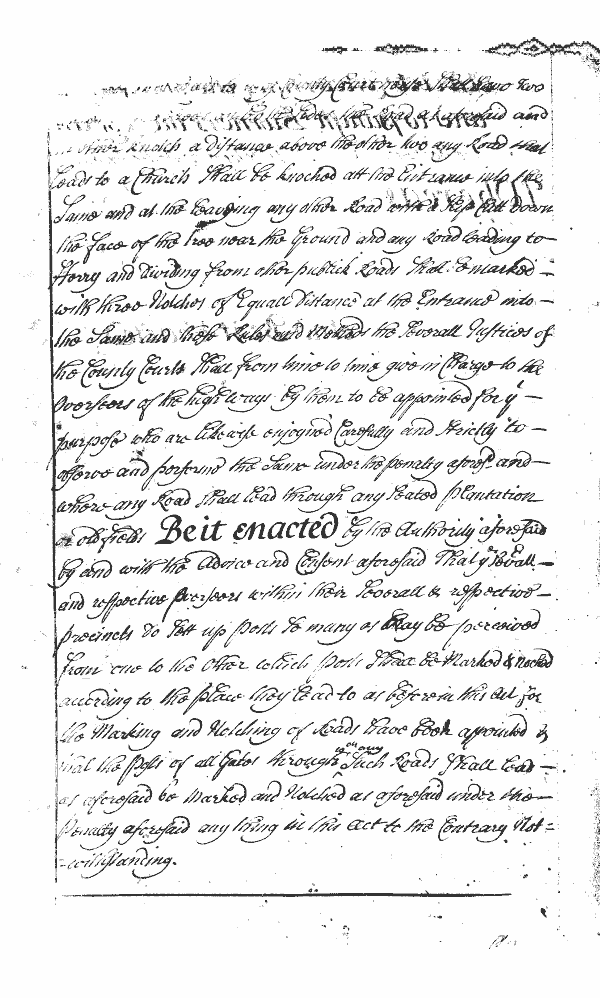 County Court house Shall have two
the Road aforesaid and
another Notch a distance above the other two any Road that
leads to a Church Shall be knoched att the Entrance into the
Same and at the Leaveing any other Road with a Slip Cutt down
the face of the Tree near the Ground and any Road leading to
fferry and Dividing from other publick Roads Shall be marked =
with three Notches of Equall distance at the Entrance into —
the Same and these Rules and Methods the Severall Justices of
the County Courts Shall from time to time give in Charge to the
Overseers of the high ways by them to be appointed for yt —
purpose who are likewise enjoyned Carefully and Strictly to —
observe and performe the Same under the penalty aforesd. and —
where any Road Shall lead through any Seated plantation
or old fields Be it enacted by the Authority aforesaid
by and with the Advice and Consent aforesaid That ye Severall —
and respective Overseers within their Severall & respective —
precincts do Sett up posts So many as May be perceived
from one to the Other which posts Shall be Marked & Notched
according to the place they lead to as before in this act for
the Marking and Notching of Roads have been appointed &
that the posts of all Gates through woh any Such Roads Shall lead —
as aforesaid be Marked and Notched as aforesaid under the —
Penalty aforesaid any thing in this act to the Contrary Not =
= withstanding.